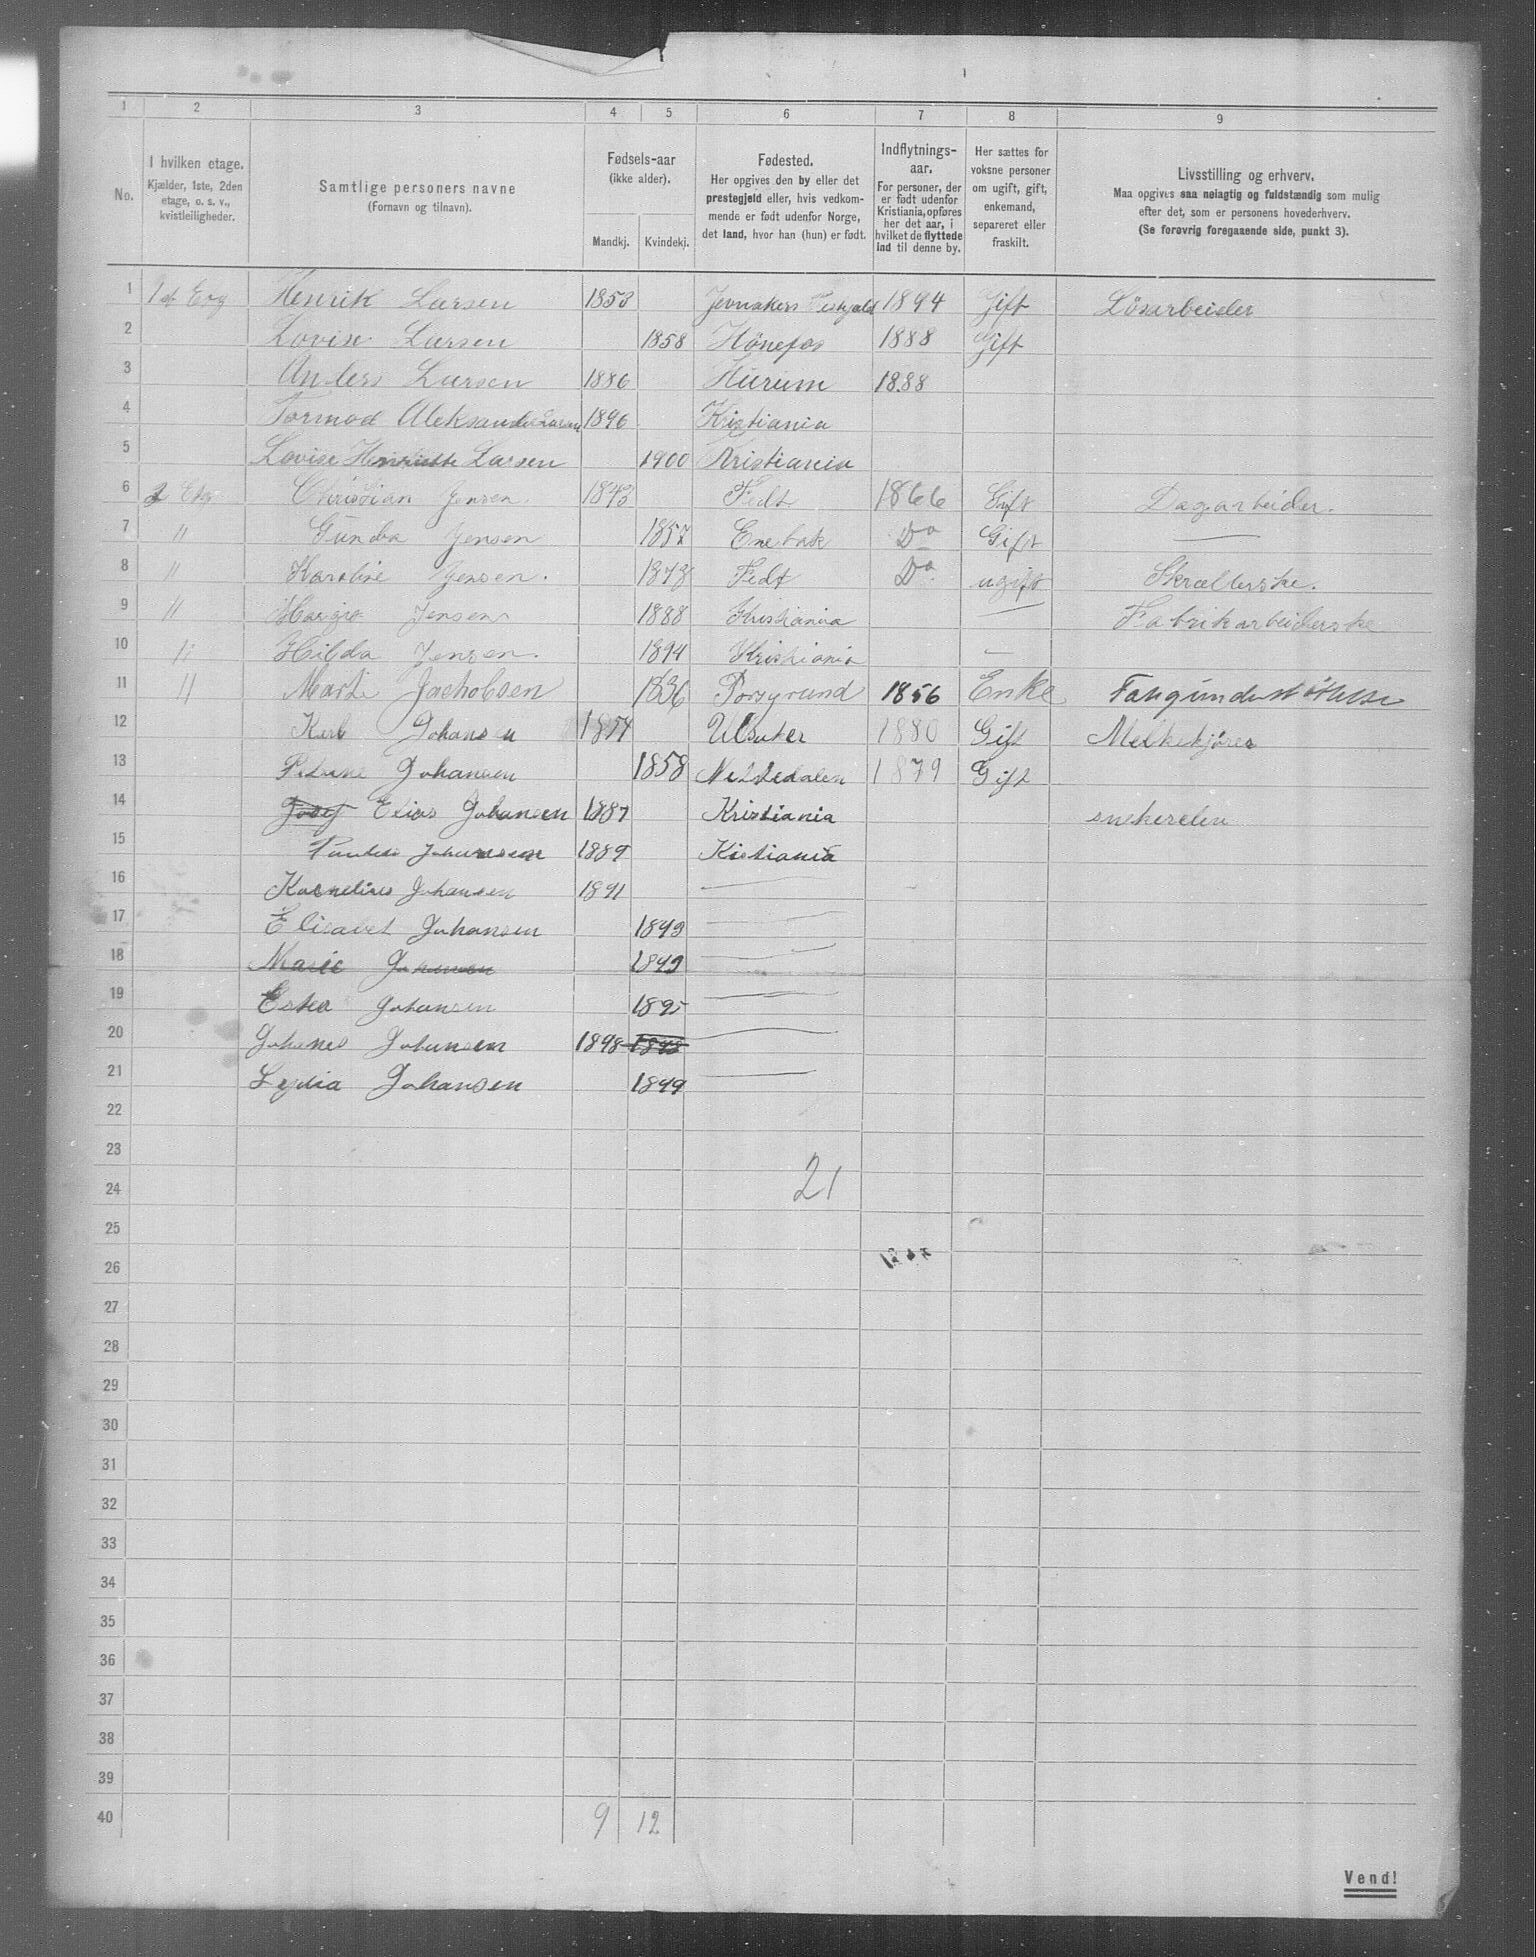 1 2 3 4 5 6 7 8 9
No.
I hvilken etage.
Kjælder, 1ste, 2den
etage, o. s. v.,
kvistleiligheder.
Samtlige personers navne
(Fornavn og tilnavn).
Fødsels-aar
(ikke alder).
Mandkj. Kvindekj.
Fødested.
Her opgives den by eller det
prestegjeld eller, hvis vedkom-
mende er født udenfor Norge,
det land, hvor han (hun) er født.
Indflytnings-
aar.
For personer, der
er født udenfor
Kristiania, opføres
her det aar, i
hvilket de flyttede
ind til denne by.
Her sættes for
voksne personer
om ugift, gift,
enkemand,
separeret eller
fraskilt.
Livsstilling og erhverv.
Maa opgives saa nøiagtig og fuldstændig som mulig
efter det, som er personens hovederhverv.
(Se forøvrig foregaaende side, punkt 3).
1 Henrik Larsen 1853 Jevnakers 1894 Gift Lösarbeider
2 Lovise Larsen 1858 Hönefos 1888 Gift
3 Anders Larsen 1886 Hurum 1888
4 Tormod Aleksander Larsen 1896 Kristiania
5 Lovise Henriette Larsen 1900 Kristiania
6 2 Etg Christian Jensen. 1843 Fedt 1866 Gift Dagarbeider.
7 " Gunda Jensen 1857 Enebak Do Gift —
8 " Karoline Jensen. 187 Fedt Do ugift Skrællerske.
9 " Margit Jensen 1888 Kristiania — Fabrikarbeiderske
10 " Hilda Jensen. 1894 Kristiania —
11 " Marti Jacholsen 1836 Porsgrund 1856 Enke
12 Karl Johansen 1854 1880 Gift Melkekjører
13 Petrine Johansen 1858 1879 Gift
14 Josef Elias Johansen 1887 Kristiania snekerelev
15 Johansen 1889 Kistiania
16 Kornelius Johansen 1891 —
17 Elisabet Johansen 1893 —
18 Marie Johansen 1893 —
19 Ester Johansen 1895 —
20 Johanes Johansen 1898 1898 —
21 Lydia Johansen 1899 —
22
23
24 21
25
26
27
28
29
30
31
32
33
34
35
36
37
38
39
40 9 12
Vend!